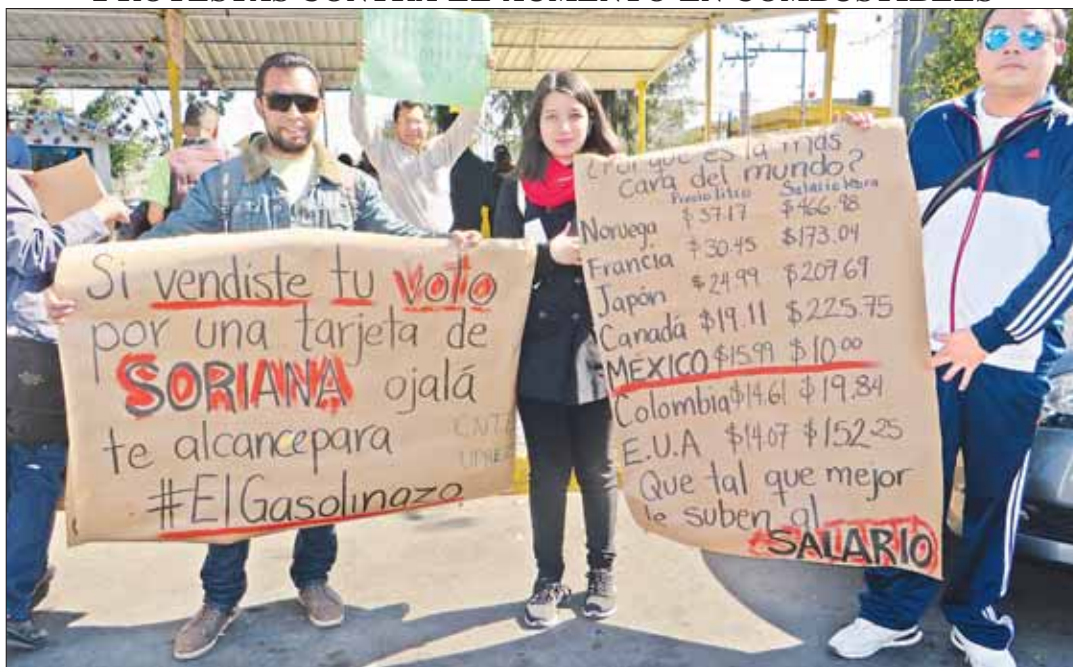 PROTESTAS CONTRA EL AUMENTO EN COMBUSTIBLES
Si vendiste tu VOTO
por una tarjeta de
SORIANA ojalá
te alcancepara
#ElGasolinazo
CNTE
¿Por qué es la más
cara del mundo?
Precio litro Salario Hora
Noruega $37.17 $466.98
Francia $30.45 $173.04
Japón $24.99 $207.69
Canadá $19.11 $225.75
MÉXICO $15.99 $10.00
Colombia $14.61 $19.84
E.U.A $14.07 $152.25
Que tal que mejor
le suben al
SALARIO